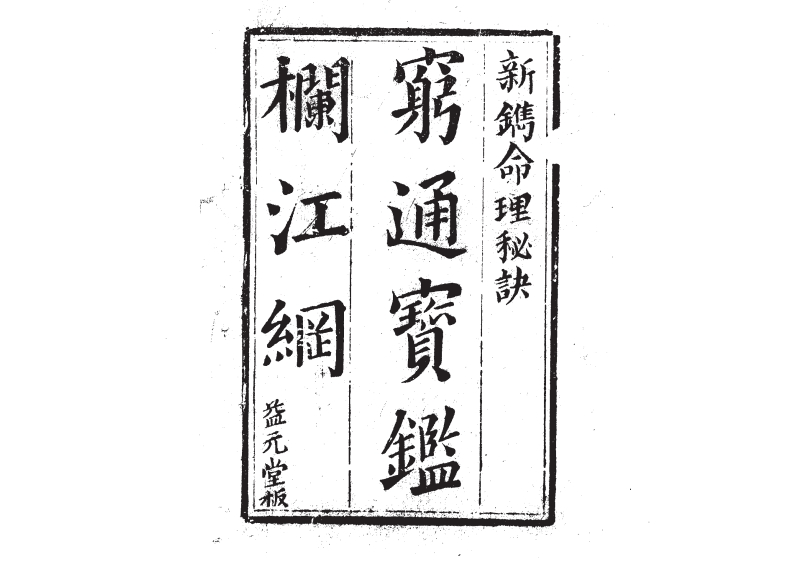 新鐫命理秘訣
窮通寳鑑
欄江綱
益元堂板